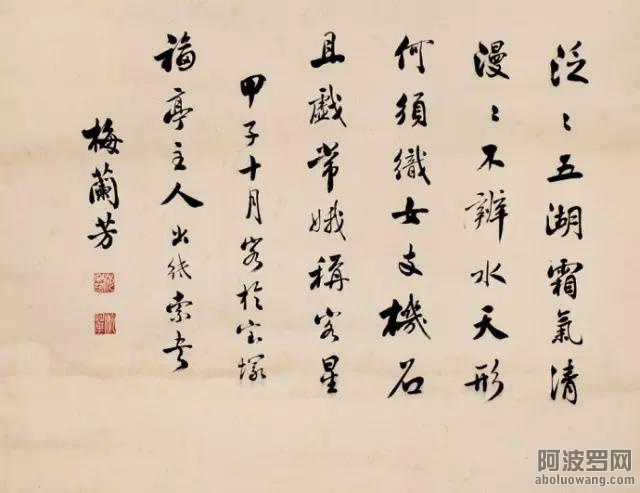 泛〻五湖霜氣清
漫〻不辨水天形
何須織女支機石
且戲常娥稱客星
甲子十月客於宝塚
福亭主人出紙索书
梅蘭芳
阿波罗网
aboluowang.com